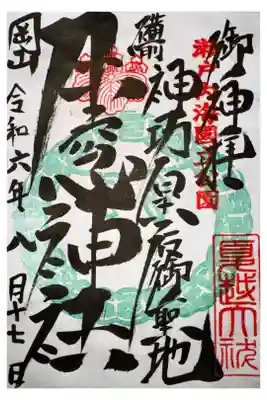 御神拝
瀬戸内海國立公園
備前
神功皇后御聖地
牛窓神社
岡山
令和六年八月十七日